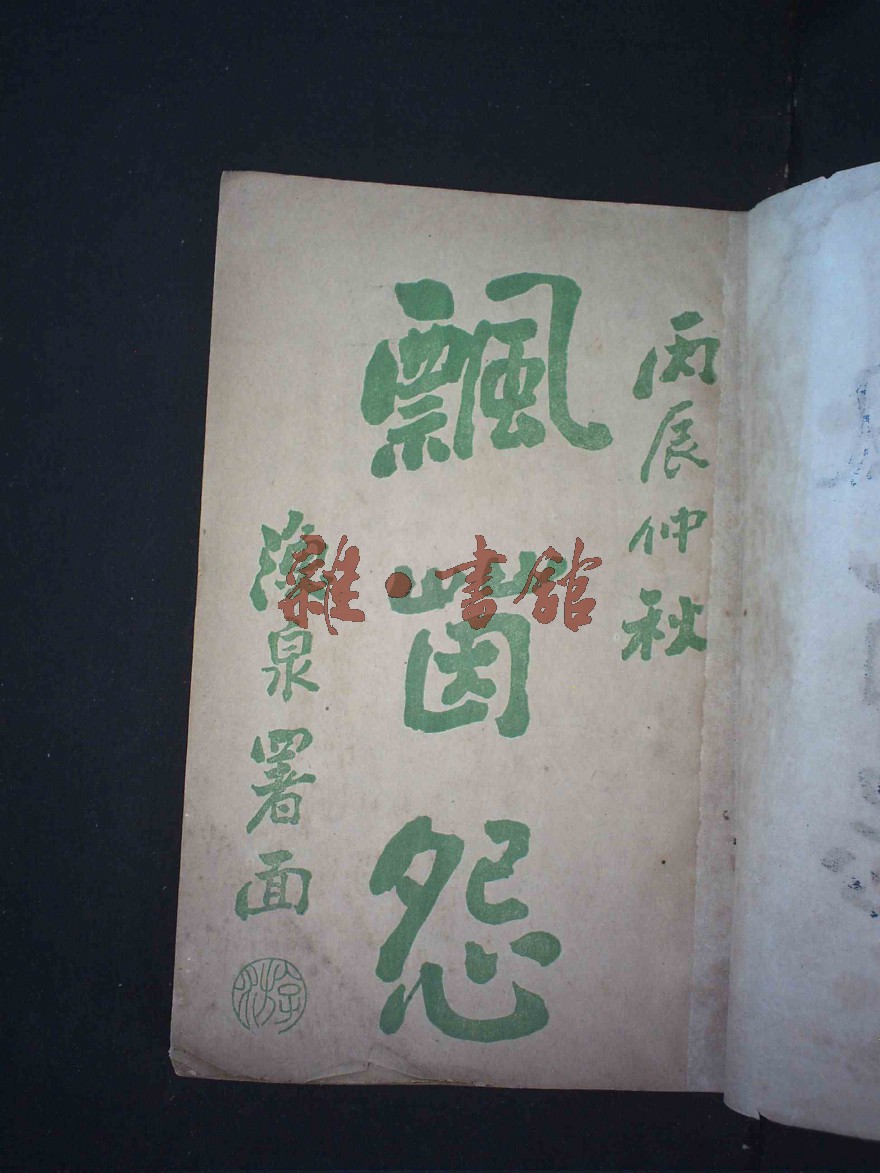 丙辰仲秋
飄茵怨
泉署面
雜·書館